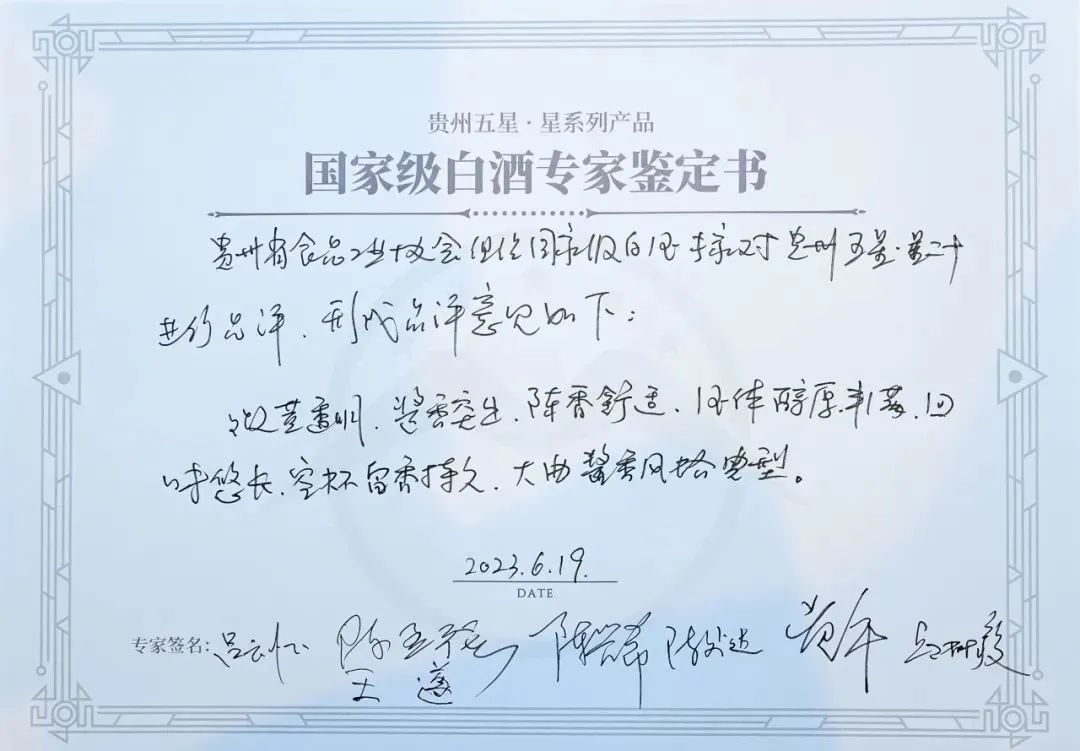 贵州五星·星系列产品
国家级白酒专家鉴定书
贵州省食品工业协会组织国家级白酒专家对贵州五星·星二十
进行品评，形成品评意见如下：
微黄透明，酱香突出，陈香舒适，酒体醇厚丰满，回
味悠长，空杯留香持久，大曲酱香风格典型。
2023.6.19.
DATE
专家签名：吕云怀
王遵